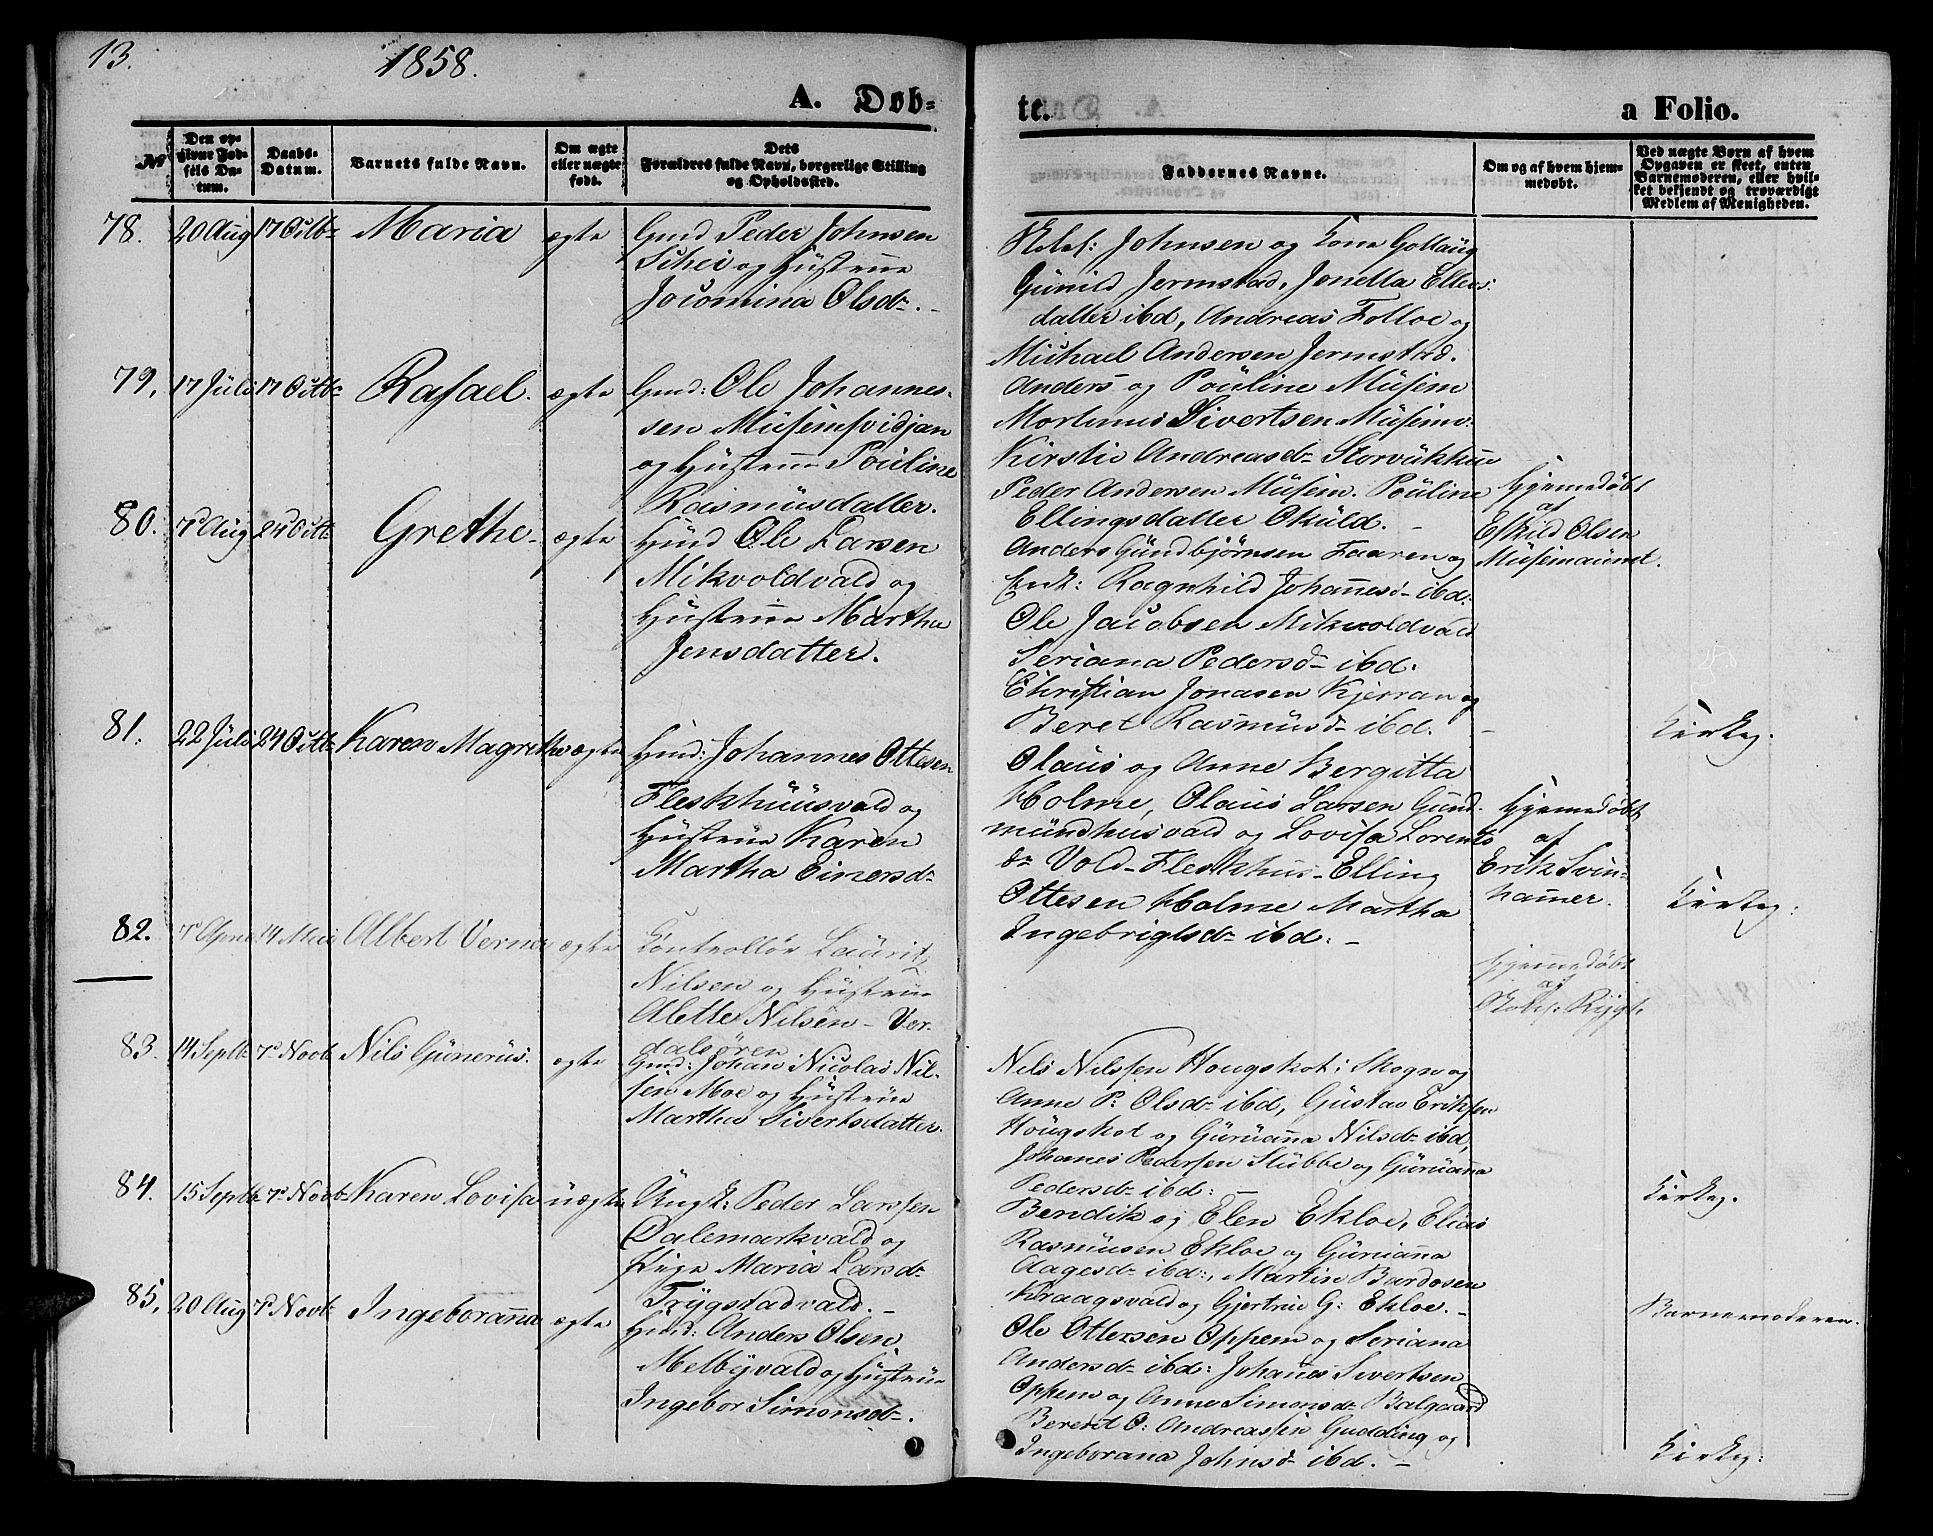 13.
1858.
A. Døb-
te.
a Folio.
№
Den op-
givne Fød-
sels Da-
tum.
Daabs-
Datum.
Barnets fulde Navn.
Om ægte
eller uægte
født.
Dets
Forældres fulde Navn, borgerlige Stilling
og Opholdssted.
Faddernes Navne.
Om og af hvem hjem-
medøbt.
Ved uægte Børn af hvem
Opgaven er skeet, enten
Barnemoderen, eller hvil-
ket bekjendt og troværdigt
Medlem af Menigheden.
78. 20 Aug 17 Octb Maria ægte
Gmd Peder Johnsen
Schei og Hustrue
Jocomina Olsd.
Johnsen og Kone
Gunild Jermstad, Jonetta Ellens
datter ibd, Andreas Folloe og
Michael Andersen Jermstad.
79. 17 Juli 17 Octb Rafael. ægte
Gmd: Ole Johannes-
sen Musimsvidjan
og Hustrue Pouline
Rasmusdatter.
Anders og Pouline Musim
Mortinus Sivertsen Musim
Kirstie Andreasd
Peder Andersen Musim. Pouline
Ellingsdatter Okuld.
80. 7 Aug 24 Octb Grethe ægte
Hmd Ole Larsen
Mikvoldvald og
Hustrue Martha
Jensdatter.
Anders Gundbjørnsen Faaren og
Enk: Ragnhild Johannesd ibd:
Ole Jacobsen Mikvoldvald
Seriana Pedersd ibd:
Christian Jonasen Kjerran og
Beret Rasmusd ibd.
Hjemedøbt
af
Eskild Olsen
Musimaunet.
Kirkeg.
81. 22 Juli 24 Octb Karen Magrethe ægte
Hmd: Johannes Ottesen
Fleskhuusvald og
Hustrue Karen
Martha Einersd
Olaus og Anne Bergitta
Holme, Olaus Larsen Gund-
mundhusvald og Lovisa Lorents
dr Vold-Fleskhus-Elling
Ottesen Holme Martha
Ingebrigtsd ibd:
Hjemedøbt
af
Erik Svin-
hamer.
Kirkeg:
82. 7 April 14 Mai Albert Verner ægte
Kontrollør Laurits
Nilsen og Hustrue
Alette Nilsen - Ver-
dalsøren
Hjemmedøbt
af
Rygh
83. 14 Septb 7 Novb Nils Gunerius. ægte
Gmd: Johan Nicolai Nil-
sen Moe og Hustrue
Martha Sivertsdatter.
Nils Nilssen Hougskot i Skogn og
Anne P: Olsd ibd, Gustav Eriksen
Hougskot og Guruanna Nilsd ibd,
Johanes Pedersen Stubbe og Guruanna
Pedersd ibd:
Kirkeg.
84. 15 Septb 7 Novb Karen Lovisa uægte
Ungk: Peder Larssen
Dalemarkvald og
Pige Maria Larsd
Trygstadvald.
Bendik og Elen Ekloe, Elias
Rasmusen Ekloe og Guruanna
Aagesd ibd:, Martin Bardosen
Kraagsvald og Gjertrue G: Ekloe.
Barnemoderen.
85. 20 Aug 7 Novb Ingeboranna ægte
Hmd: Anders Olsen
Melbyvald og Hustrue
Ingebor Simonsd.
Ole Ottersen Oppem og Seriana
Andersd ibd: Johanes Sivertsen
Oppem og Anne Simonsd Balgaard
Berent O: Andreassen Gudding og
Ingeborana Johnsd ibd.
Kirkeg: